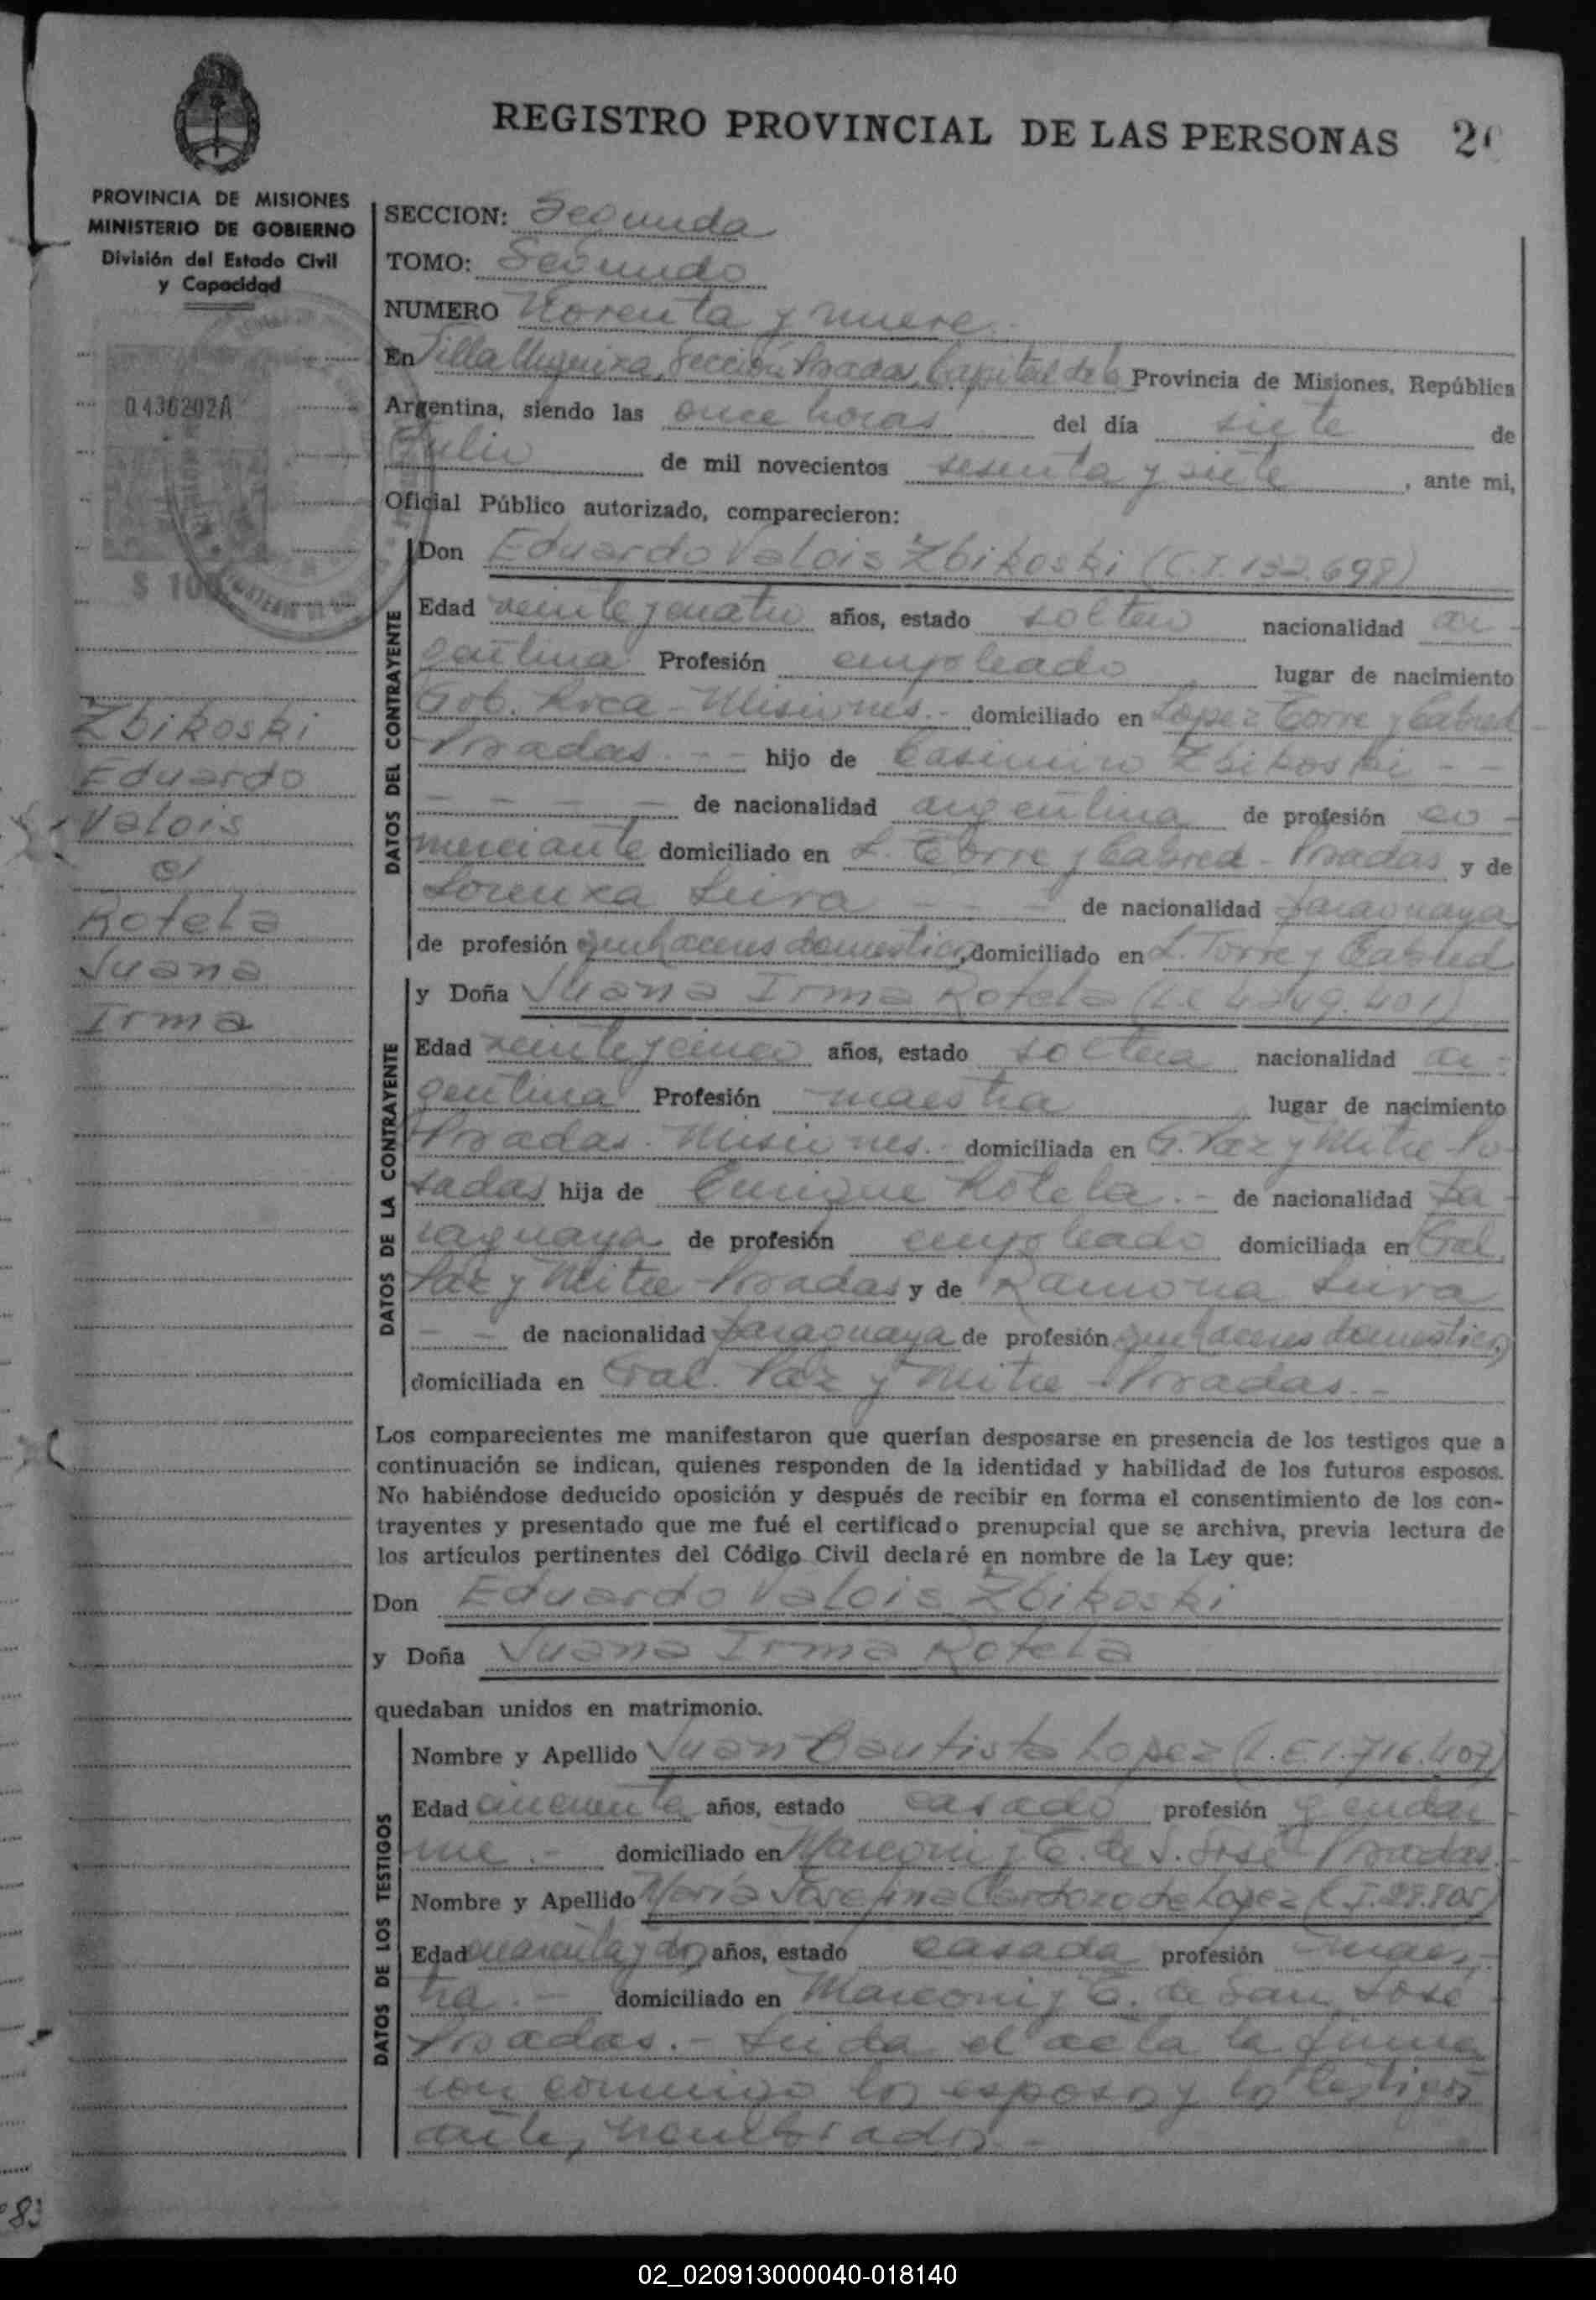 REGISTRO PROVINCIAL DE LAS PERSONAS 20
PROVINCIA DE MISIONES
MINISTERIO DE GOBIERNO
División del Estado Civil
y Capacidad
0.436202A
$ 100
Zbikoski
Eduardo
Valois
c/
Rotela
Juana
Irma
SECCION: Segunda
TOMO: Segundo
NUMERO Noventa y nueve
En Villa Urquiza, Sección Posadas, Capital de la Provincia de Misiones, República
Argentina, siendo las once horas del día siete de
Julio de mil novecientos sesenta y siete, ante mi,
Oficial Público autorizado, comparecieron:
DATOS DEL CONTRAYENTE
Don Eduardo Valois Zbikoski (C.I. 132.698)
Edad veinte y cuatro años, estado soltero nacionalidad ar-
gentina Profesión empleado lugar de nacimiento
Gob. Roca - Misiones.- domiciliado en Lopez Torre y Cabred
Posadas.-- hijo de Casimiro Zbikoski --
- - - - - de nacionalidad argentina de profesión co-
merciante domiciliado en L. Torre y Cabred - Posadas y de
Lorenza Leiva - - - de nacionalidad paraguaya
de profesión quehaceres domesticos, domiciliado en L. Torre y Cabred
DATOS DE LA CONTRAYENTE
y Doña Juana Irma Rotela (L.C 4.249.401)
Edad veinte y cinco años, estado soltera nacionalidad ar-
gentina Profesión maestra lugar de nacimiento
Posadas. Misiones.- domiciliada en G. Paz y Mitre Po-
sadas hija de Enrique Rotela.- de nacionalidad pa-
raguaya de profesión empleado domiciliada en Gral.
Paz y Mitre - Posadas y de Ramona Leiva
- - de nacionalidad paraguaya de profesión quehaceres domesticos,
domiciliada en Gral. Paz y Mitre - Posadas.-
Los comparecientes me manifestaron que querían desposarse en presencia de los testigos que a
continuación se indican, quienes responden de la identidad y habilidad de los futuros esposos.
No habiéndose deducido oposición y después de recibir en forma el consentimiento de los con-
trayentes y presentado que me fué el certificado prenupcial que se archiva, previa lectura de
los artículos pertinentes del Código Civil declaré en nombre de la Ley que:
Don Eduardo Valois Zbikoski
y Doña Juana Irma Rotela
quedaban unidos en matrimonio.
DATOS DE LOS TESTIGOS
Nombre y Apellido Juan Bautista Lopez (L.E 1.716.407)
Edad cincuenta años, estado casado profesión gendar-
me.- domiciliado en Marconi y C. de S. José Posadas.
Nombre y Apellido María Josefina Cardozo de Lopez (C.I. 28.805)
Edad cuarenta y dos años, estado casada profesión maes-
tra.- domiciliado en Marconi y C. de San José
Posadas.- Leida el acta la firma
ron conmigo los esposos y los testigos
antes nombrados.-
83
02_020913000040-018140